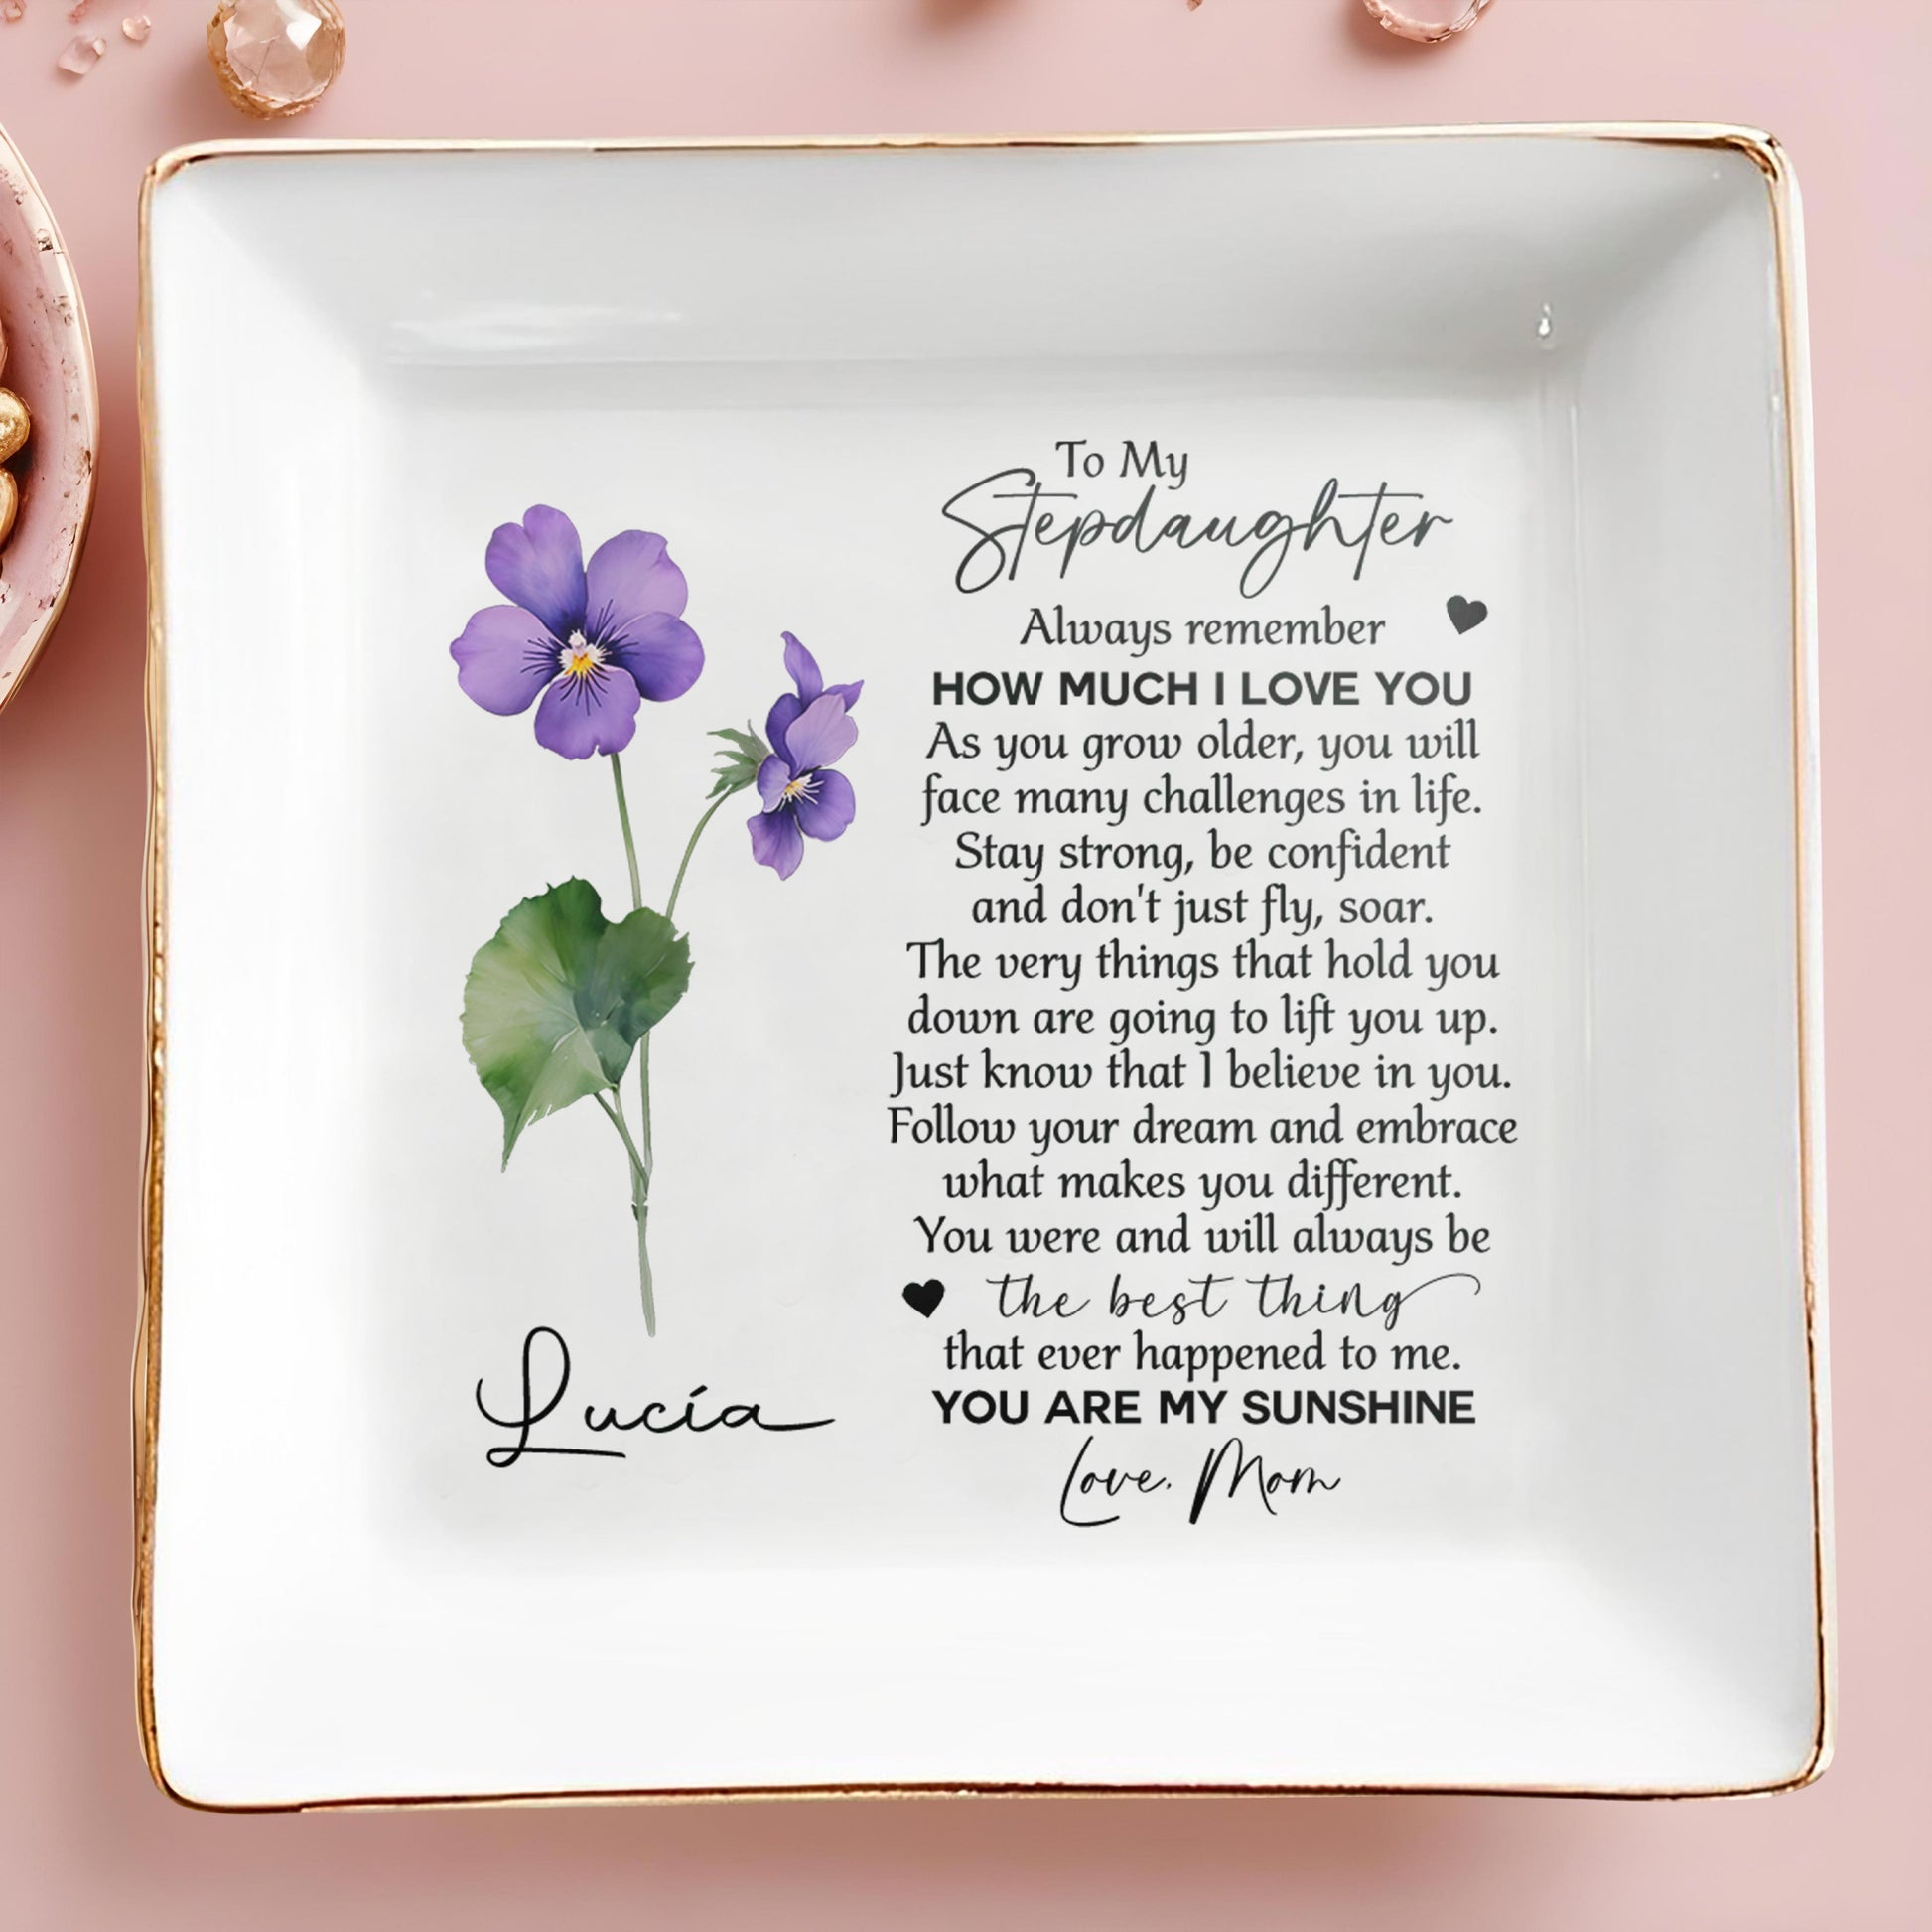 To My
Stepdaughter
Always remember
HOW MUCH I LOVE YOU
As you grow older, you will
face many challenges in life.
Stay strong, be confident
and don't just fly, soar.
The very things that hold you
down are going to lift you up.
Just know that I believe in you.
Follow your dream and embrace
what makes you different.
You were and will always be
the best thing
that ever happened to me.
YOU ARE MY SUNSHINE
Love, Mom
Lucía